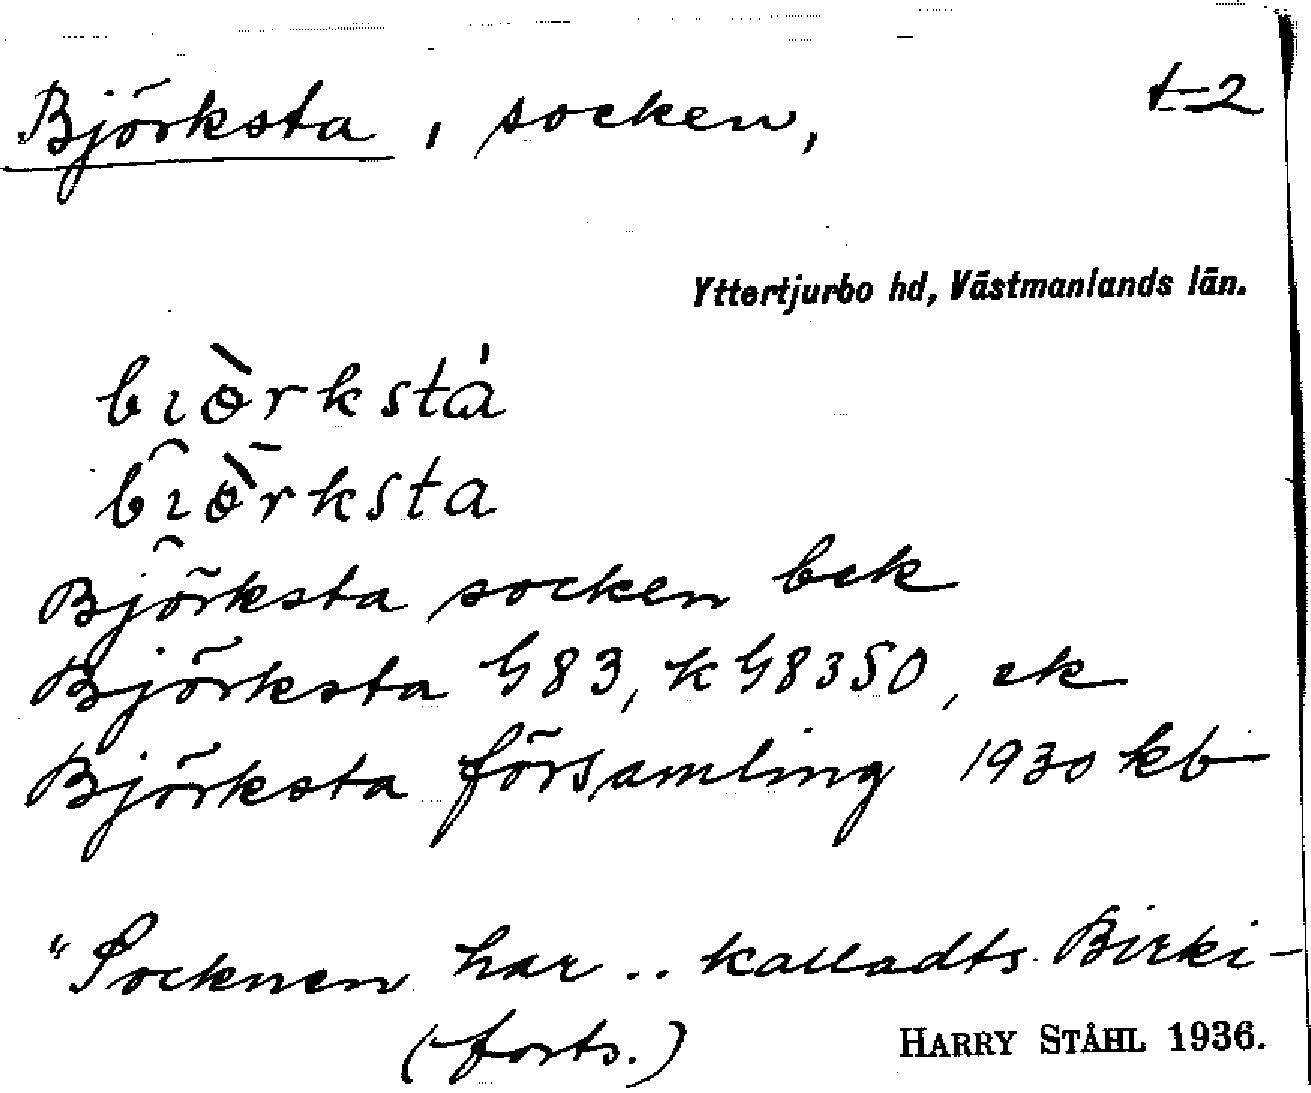 Björksta, socken, t-2
Yttertjurbo hd, Västmanlands län.
bı̯ɵ̀rkstá
bı̯ɵ̀rksta
Björksta socken bek
Björksta G83, k G83SO, ek
Björksta församling 1930 kb
"Socknen har .. kalladts Birki-
(forts.)
HARRY STÅHL 1936.